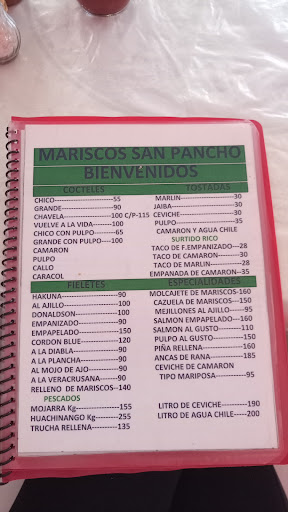 MARISCOS SAN PANCHO
BIENVENIDOS
COCTELES
CHICO-------------55
GRANDE-------------90
CHAVELA-----------100 C/P-115
VUELVE A LA VIDA-------100
CHICO CON PULPO------65
GRANDE CON PULPO----100
CAMARON
PULPO
CALLO
CARACOL
TOSTADAS
MARLIN-------------30
JAIBA---------------30
CEVICHE------------30
PULPO--------------35
CAMARON Y AGUA CHILE
SURTIDO RICO
TACO DE F.EMPANIZADO---28
TACO DE CAMARON-------30
TACO DE MARLIN--------28
EMPANADA DE CAMARON-35
FIELETES
HAKUNA-------------90
AL AJILLO-----------100
DONALDSON---------100
EMPANIZADO---------90
EMPAPELADO--------150
CORDON BLUE-------120
A LA DIABLA----------90
A LA PLANCHA--------90
AL MOJO DE AJO-------90
A LA VERACRUSANA----90
RELLENO DE MARISCOS--140
PESCADOS
MOJARRA Kg----------155
HUACHINANGO Kg------255
TRUCHA RELLENA-------135
ESPECIALIDADES
MOLCAJETE DE MARISCOS-160
CAZUELA DE MARISCOS---150
MEJILLONES AL AJILLO----95
SALMON EMPAPELADO---160
SALMON AL GUSTO------110
PULPO AL GUSTO--------150
PIÑA RELLENA----------160
ANCAS DE RANA--------185
CEVICHE DE CAMARON
TIPO MARIPOSA---------95
LITRO DE CEVICHE---------190
LITRO DE AGUA CHILE-----200